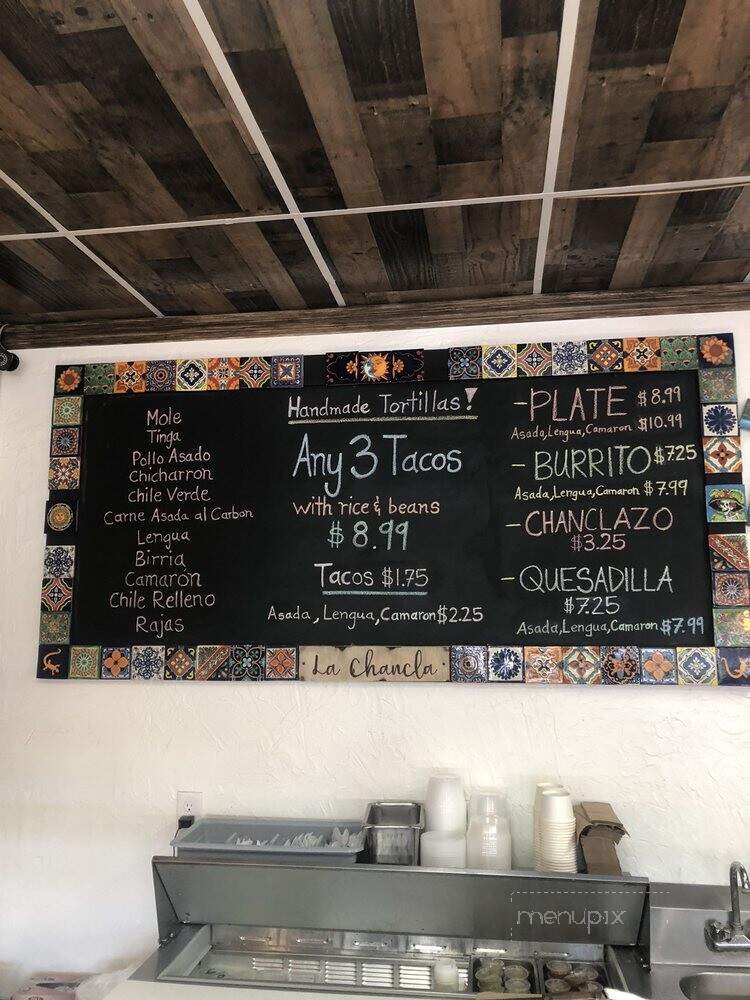 Mole
Tinga
Pollo Asado
Chicharron
Chile Verde
Carne Asada al Carbon
Lengua
Birria
Camaron
Chile Relleno
Rajas
Handmade Tortillas!
Any 3 Tacos
with rice & beans
$8.99
Tacos $1.75
Asada, Lengua, Camaron $2.25
- PLATE $8.99
Asada, Lengua, Camaron $10.99
- BURRITO $7.25
Asada, Lengua, Camaron $7.99
- CHANCLAZO
$3.25
- QUESADILLA
$7.25
Asada, Lengua, Camaron $7.99
La Chancla
menupix